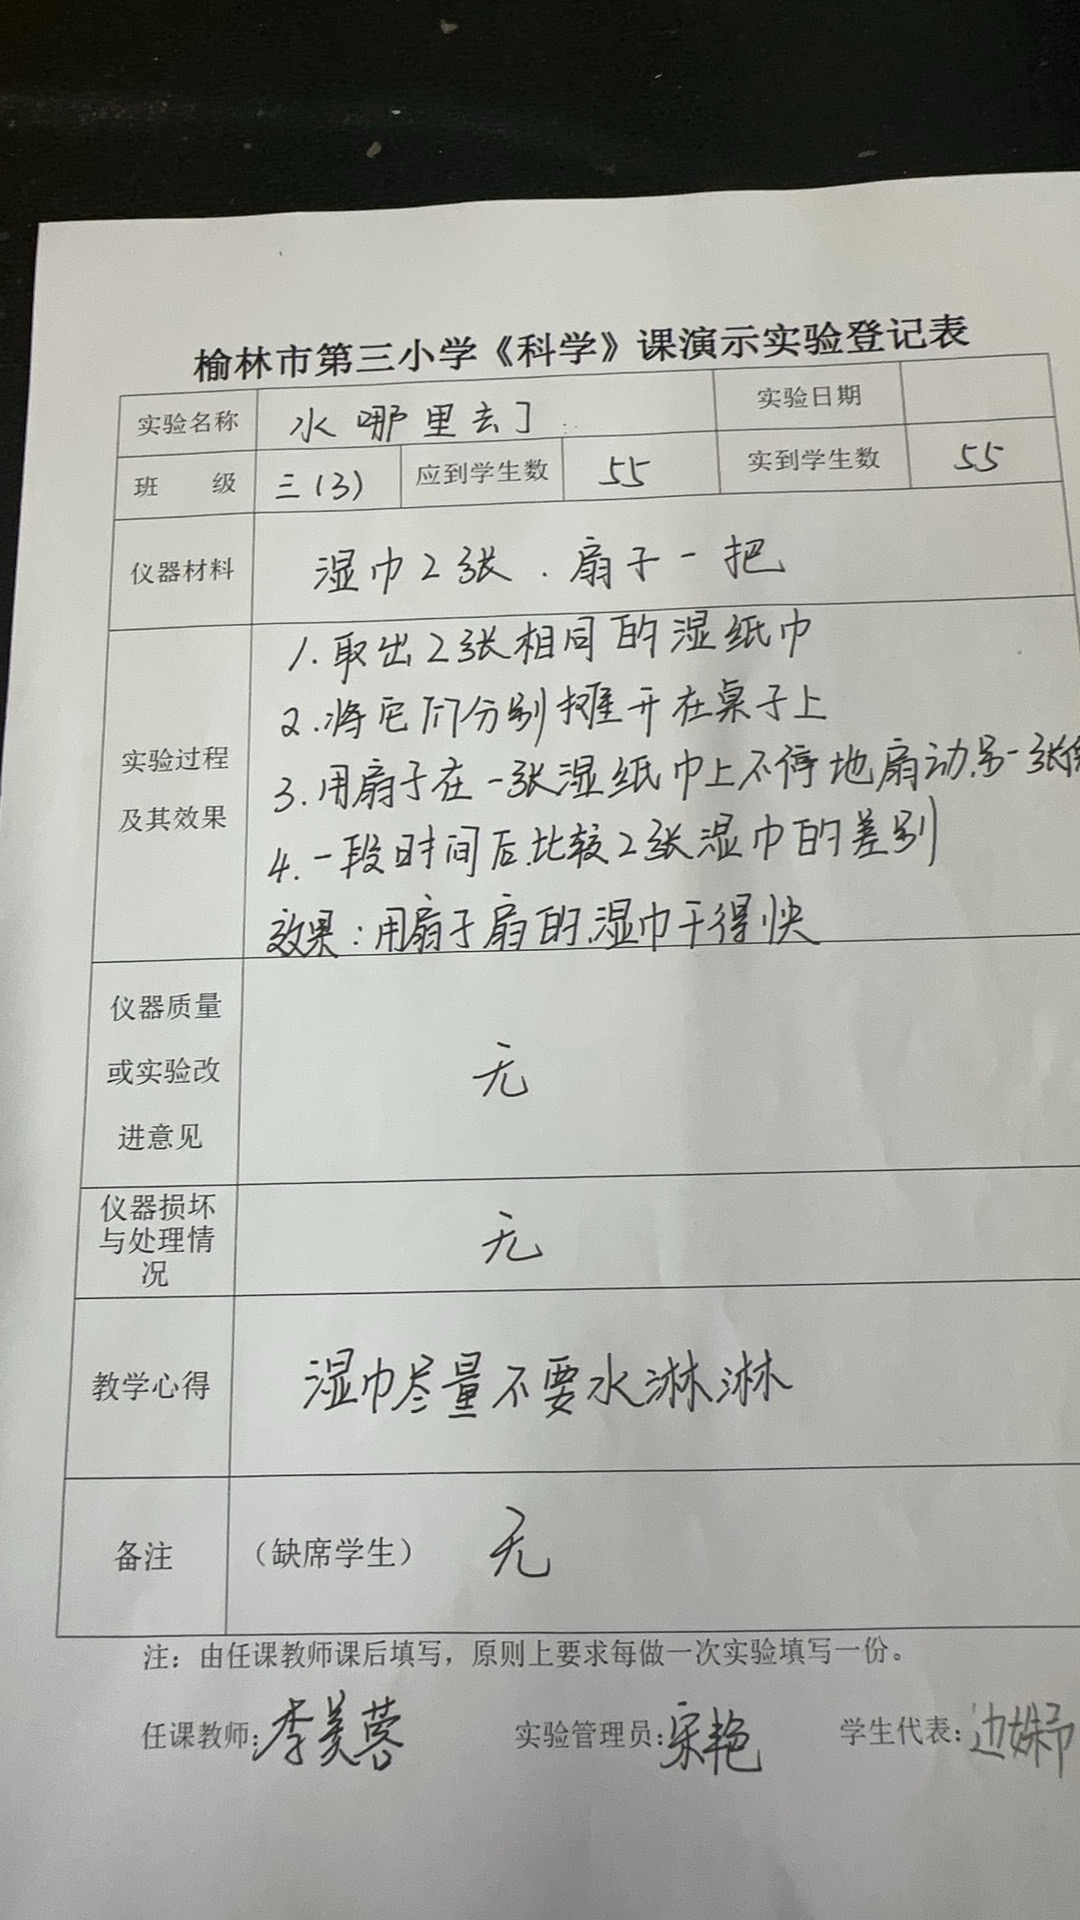 榆林市第三小学《科学》课演示实验登记表
实验名称 水哪里去了 实验日期
班 级 三(3) 应到学生数 55 实到学生数 55
仪器材料 湿巾2张．扇子一把
1.取出2张相同的湿纸巾
2.将它们分别摊开在桌子上
实验过程
及其效果
3.用扇子在一张湿纸巾上不停地扇动,另一张
4.一段时间后,比较2张湿巾的差别
效果:用扇子扇的,湿巾干得快
仪器质量
或实验改
进意见
无
仪器损坏
与处理情
况
无
教学心得 湿巾尽量不要水淋淋
备注 （缺席学生） 无
注：由任课教师课后填写，原则上要求每做一次实验填写一份。
任课教师:李美蓉 实验管理员:宋艳 学生代表:边姝